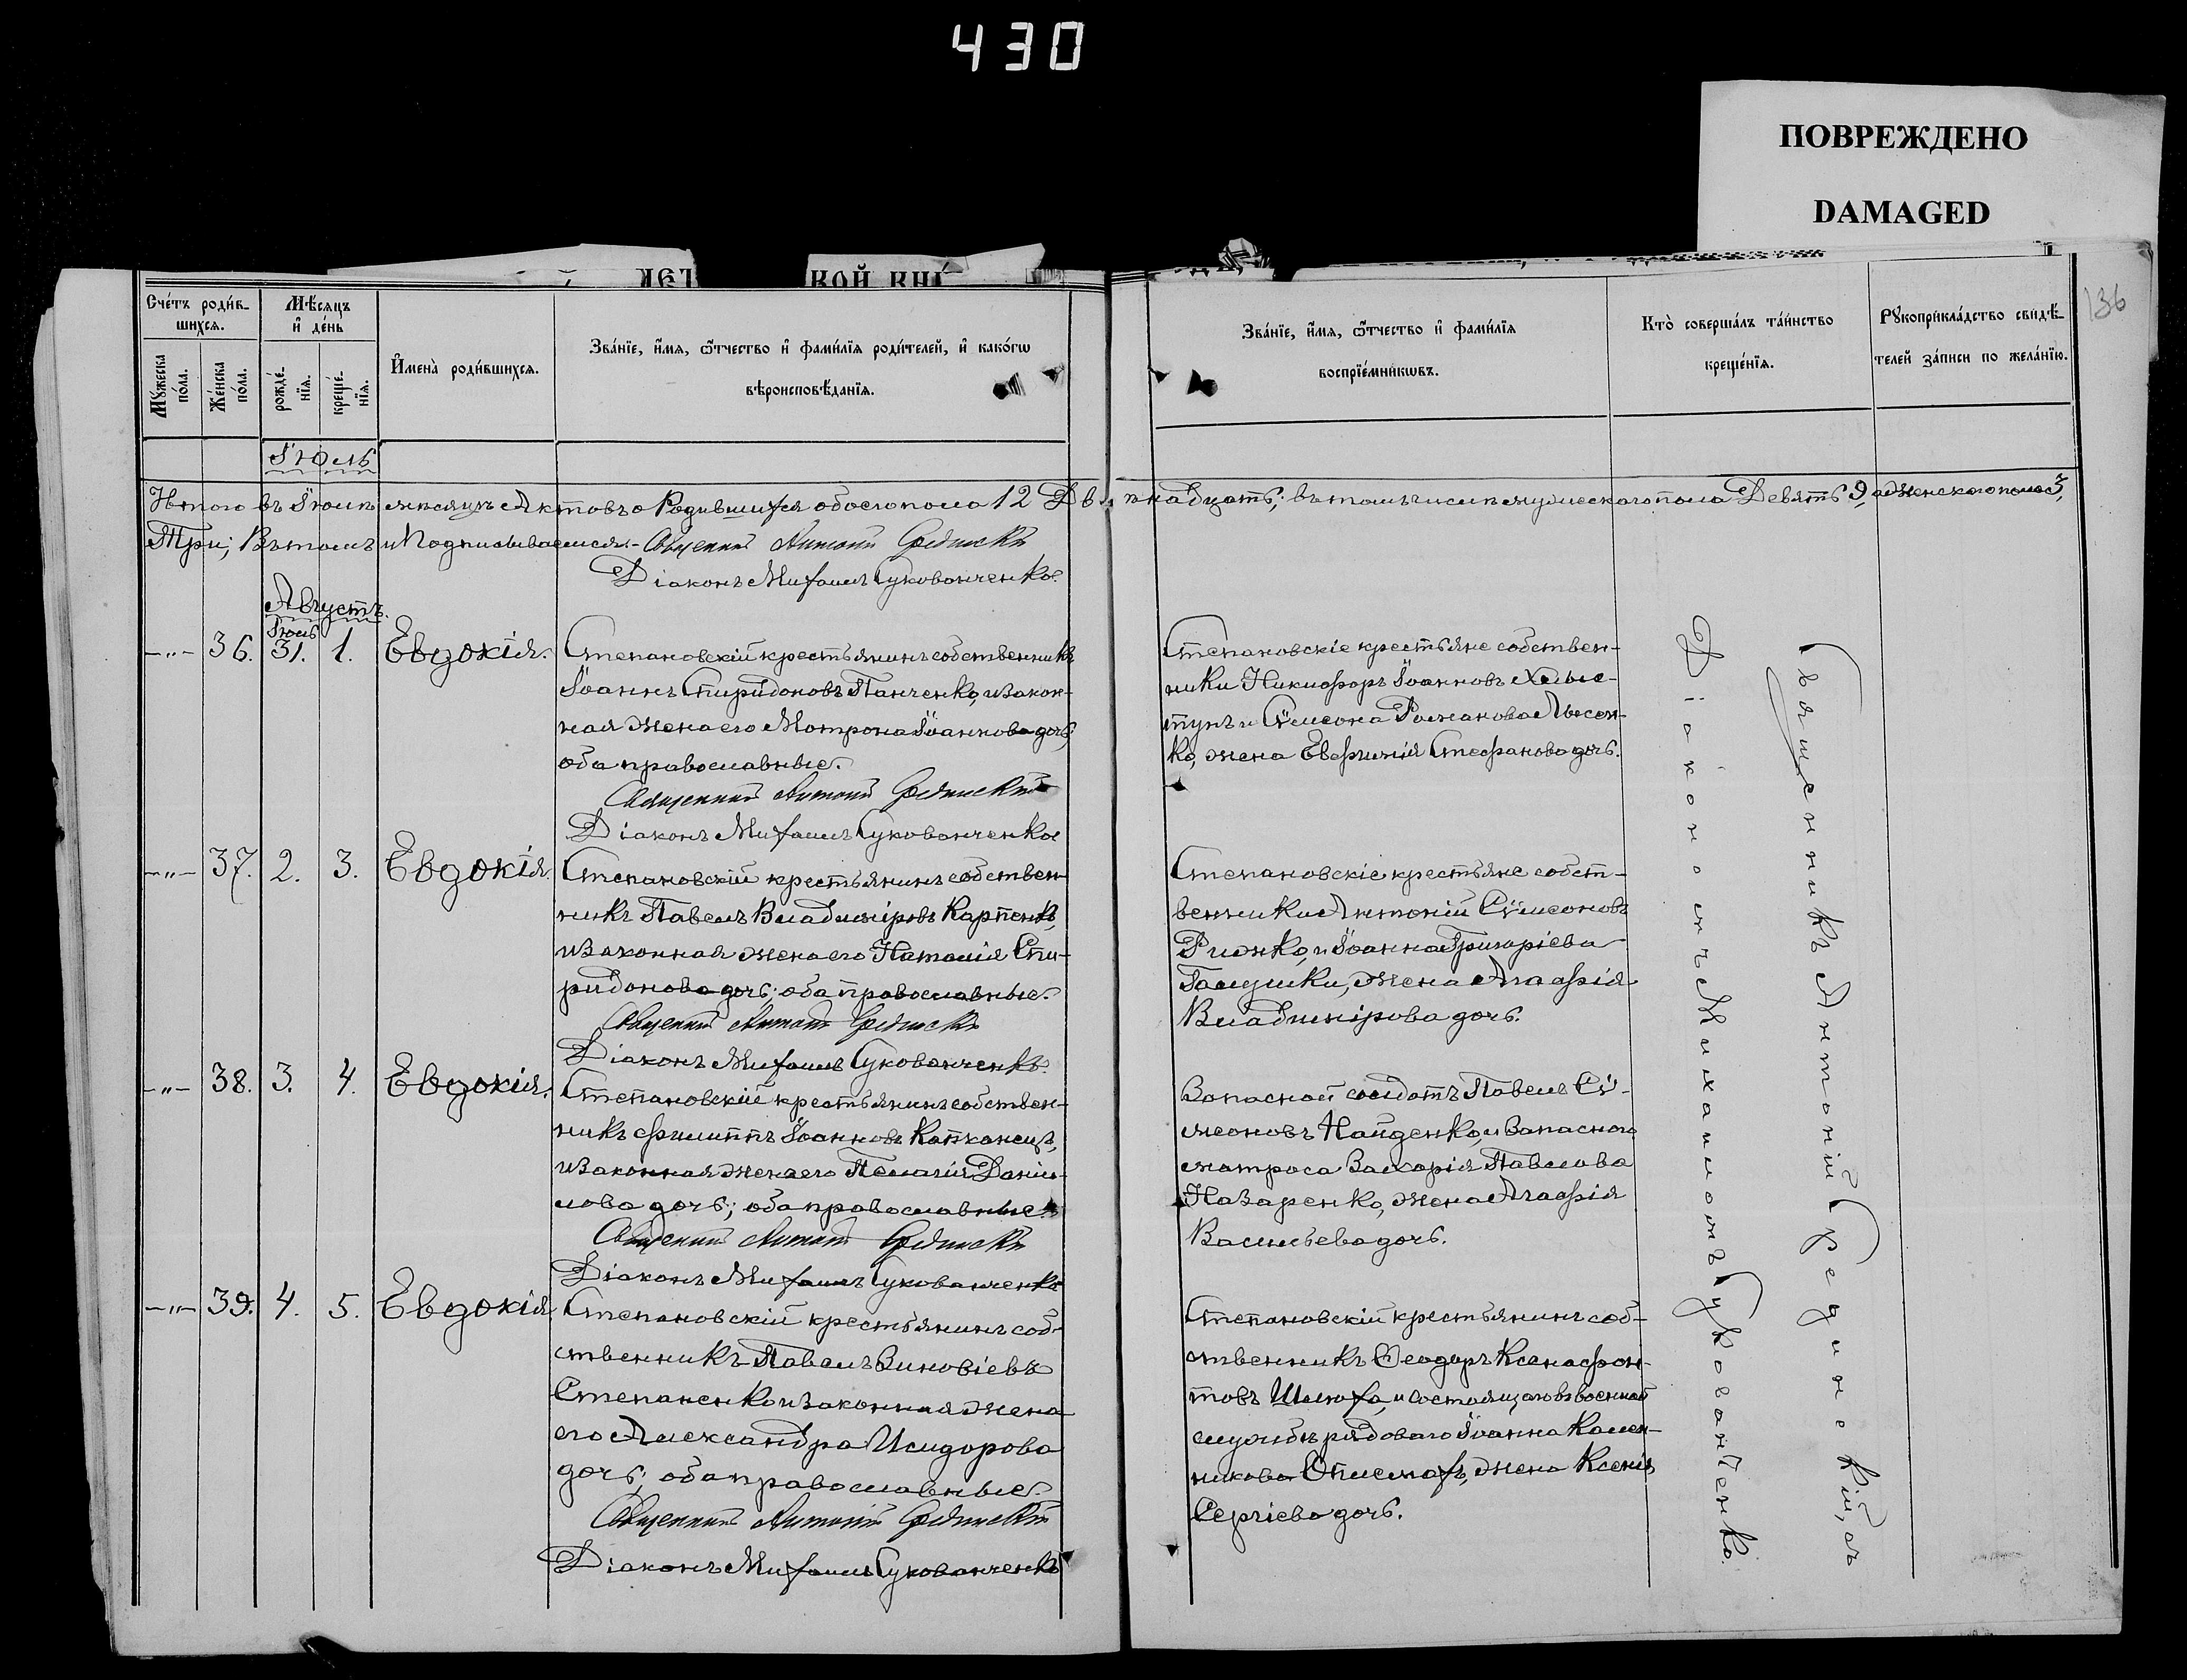 430
ПОВРЕЖДЕНО
DAMAGED
КОЙ КНИ
136
Счетъ родившихся.
Мѣсяцъ и день
Имена родившихся.
Званіе, имя, отчество и фамилія родителей, и какого
вѣроисповѣданія.
Званіе, имя, отчество и фамилія
воспріемниковъ.
Кто совершалъ таинство
крещенія.
Рукоприкладство свидѣ-
телей записи по желанію.
Мужеска пола.
Женска пола.
рожденія.
крещенія.
Іюль
Итого въ Іюлѣ мѣсяцѣ Актовъ о Родившихся обоего пола 12 Двѣнадцать; въ томъ числѣ мужескаго пола Девять 9, а женскаго пола 3,
Три; Въ томъ и Подписываемся. Священникъ Антоній Срединскій
Діаконъ Михаилъ Сукованченко.
Августъ.
Іюль
-"- 36. 31. 1. Евдокія.
Степановскій крестьянинъ собственникъ
Іоаннъ Спиридоновъ Панченко, и закон-
ная жена его Мотрона Іоаннова дочь,
оба православные.
Священникъ Антоній Срединскій
Діаконъ Михаилъ Сукованченко
Степановскіе крестьяне собствен-
ники Никифоръ Іоанновъ Хелис-
тунъ и Сѵмеона Романова Лысен-
ко, жена Евфимія Стефанова дочь.
-"- 37. 2. 3. Евдокія.
Степановскій крестьянинъ собствен-
никъ Павелъ Владиміровъ Карпенко,
и законная жена его Наталія Спи-
ридонова дочь; оба православные.
Священникъ Антоній Срединскій
Діаконъ Михаилъ Сукованченко.
Степановскіе крестьяне собст-
венники Антоній Сѵмеоновъ
Рижко, и Іоанна Григоріева
Галушки, жена Агафія
Владимірова дочь.
-"- 38. 3. 4. Евдокія.
Степановскій крестьянинъ собствен-
никъ Филиппъ Іоанновъ Капканецъ,
и законная жена его Пелагія Даніи-
лова дочь; оба православные.
Священникъ Антоній Срединскій
Діаконъ Михаилъ Сукованченко
Запасной солдатъ Павелъ Сѵ-
меоновъ Найденко, и запаснаго
матроса Захарія Павлова
Назаренко, жена Агафія
Васильева дочь.
-"- 39. 4. 5. Евдокія
Степановскій крестьянинъ соб-
ственникъ Павелъ Зиновіевъ
Степаненко и законная жена
его Александра Исидорова
дочь; оба православные.
Священникъ Антоній Срединскій
Діаконъ Михаилъ Сукованченко
Степановскій крестьянинъ соб-
ственникъ Ѳеодоръ Ксенофон-
товъ Шлюха, и состоящаго въ военной
службѣ рядоваго Іоанна
жена Ксенія
Сергіева дочь.
Священникъ Антоній Срединскій, съ
Діакономъ Михаиломъ Сукованченко.